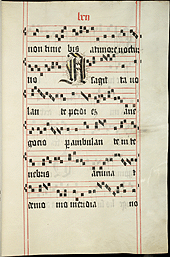 lxii
non time bis a timore noctur
no A sagit ta uo
lan de per di ez a ne
gocio pambulan de in te
nebris a ruina
demo nio meridia no